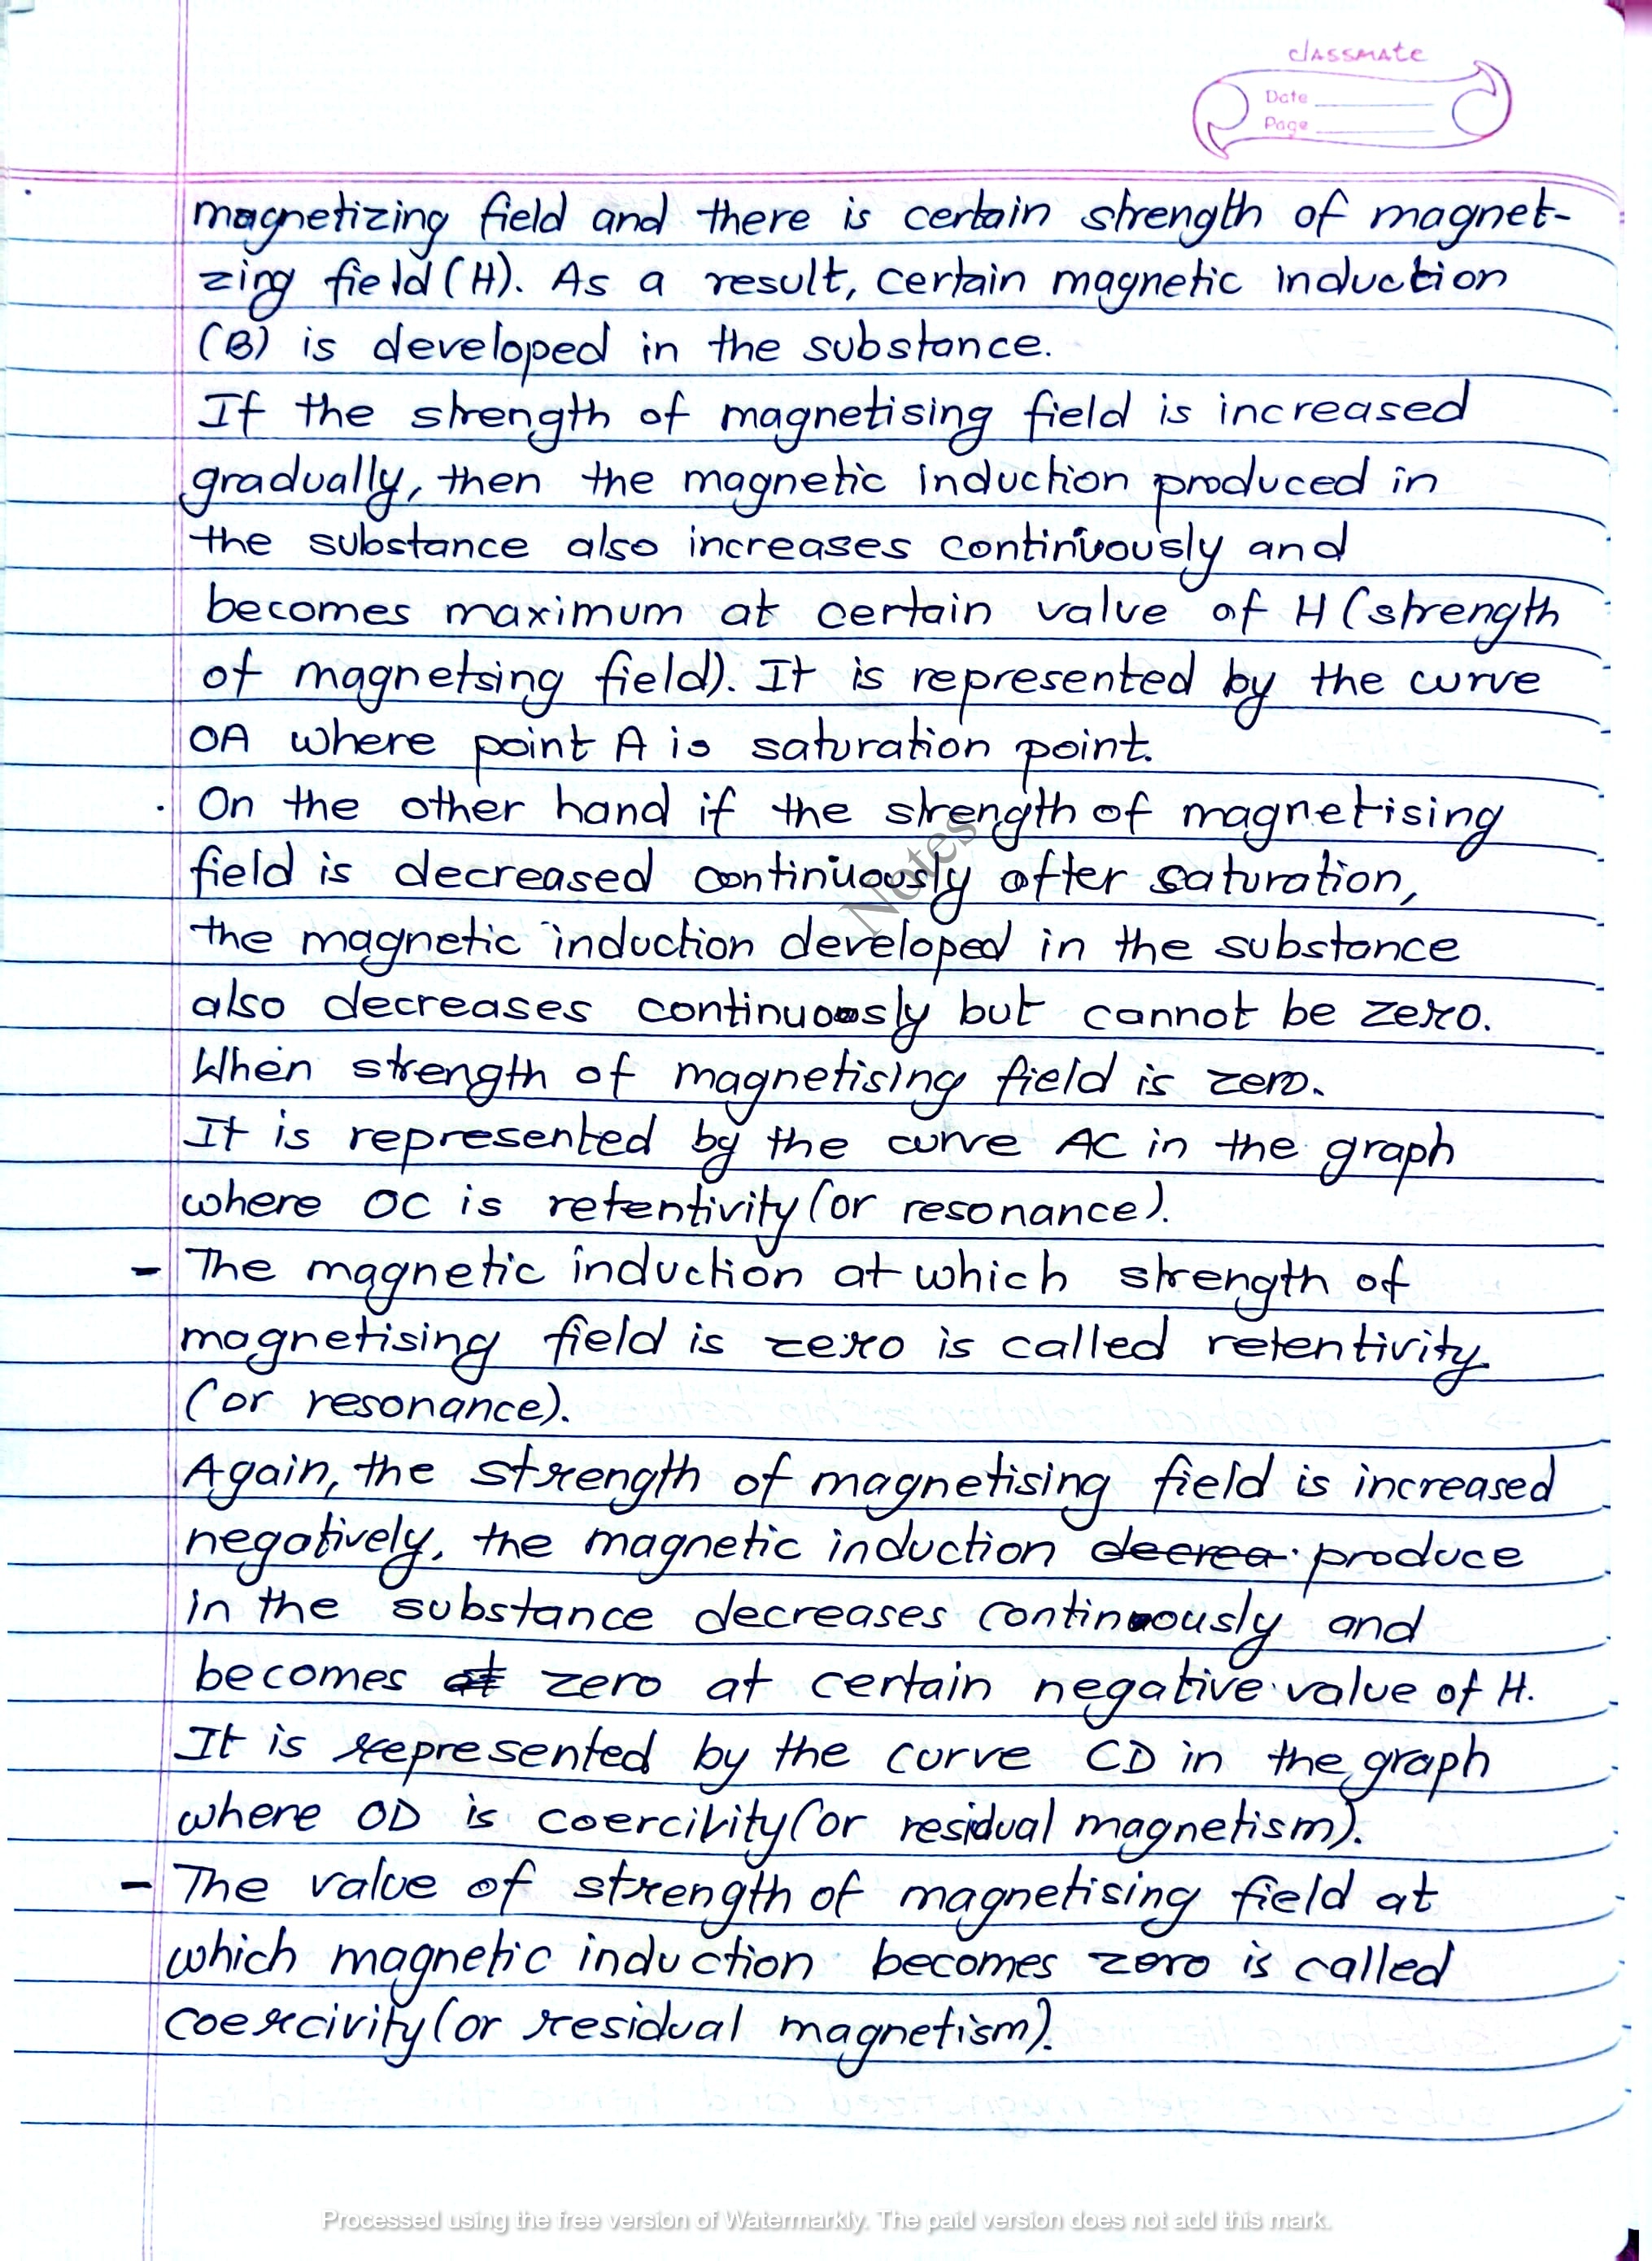 classmate
Date
Page
magnetizing field and there is certain strength of magnet-
zing field (H). As a result, certain magnetic induction
(B) is developed in the substance.
If the strength of magnetising field is increased
gradually, then the magnetic induction produced in
the substance also increases continuously and
becomes maximum at certain value of H (strength
of magnetsing field). It is represented by the curve
OA where point A is saturation point.
. On the other hand if the strength of magnetising
field is decreased continuously after saturation,
the magnetic induction developed in the substance
also decreases continuously but cannot be zero.
When strength of magnetising field is zero.
It is represented by the curve AC in the graph
where OC is retentivity (or resonance).
- The magnetic induction at which strength of
magnetising field is zero is called retentivity
(or resonance).
Again, the strength of magnetising field is increased
negatively, the magnetic induction decrea produce
in the substance decreases continuously and
becomes at zero at certain negative value of H.
It is represented by the curve CD in the graph
where OD is coercivity (or residual magnetism).
- The value of strength of magnetising field at
which magnetic induction becomes zero is called
coercivity (or residual magnetism).
Notes
Processed using the free version of Watermarkly. The paid version does not add this mark.